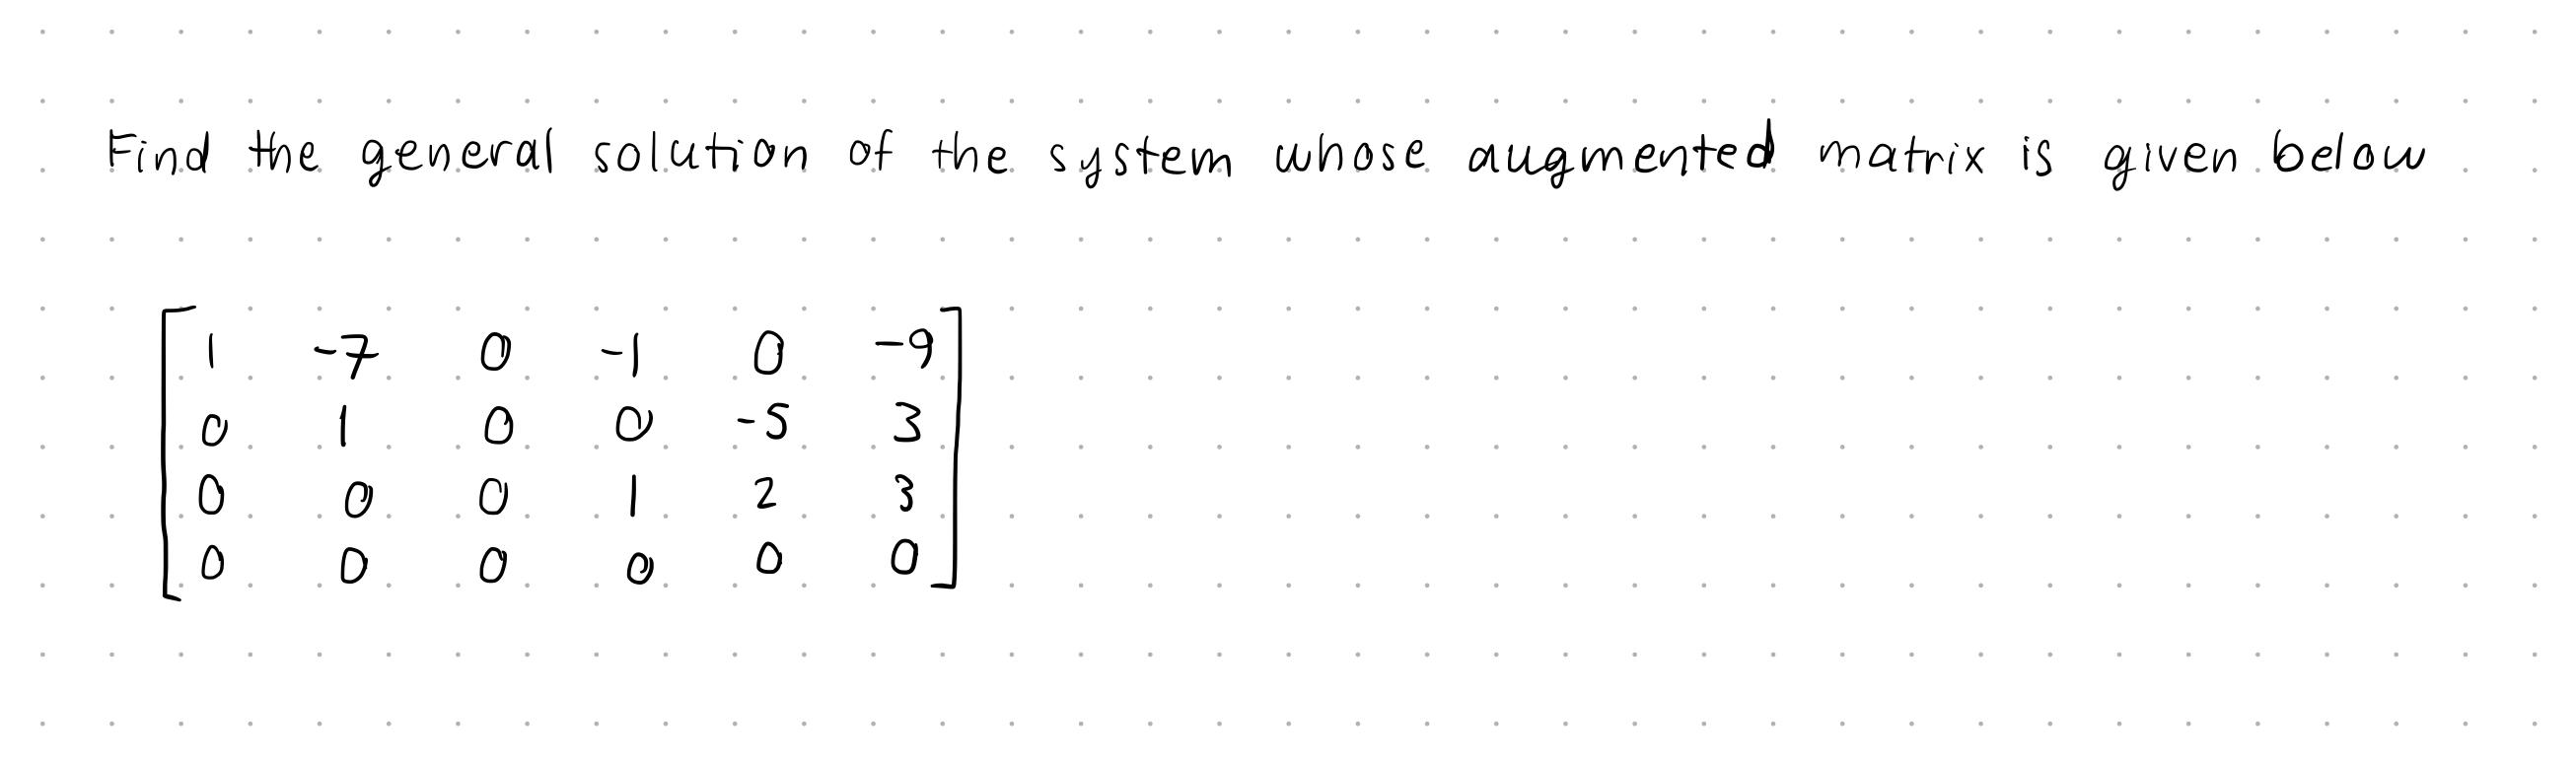 Find the general solution of the system whose augmented matrix is given below
1 -7 0 -1 0 -9
0 1 0 0 -5 3
0 0 0 1 2 3
0 0 0 0 0 0